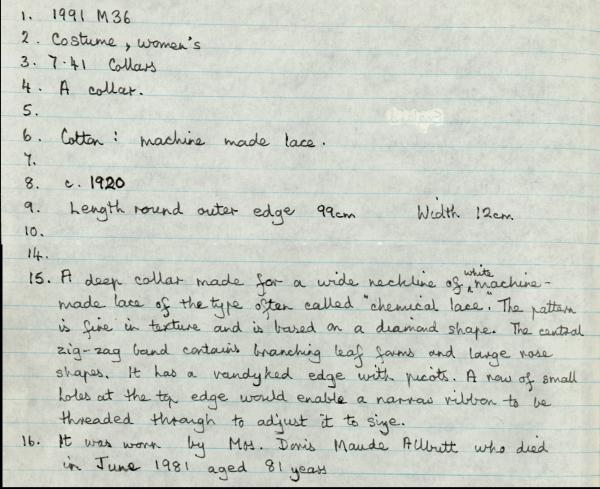 1. 1991 M36
2. Costume, women's
3. 7.41 Collars
4. A collar.
5.
6. Cotton: machine made lace.
7.
8. c. 1920
9. Length round outer edge 99cm Width 12cm.
10.
14.
15. A deep collar made for a wide neckline of white machine-
made lace of the type often called "chemical lace". The pattern
is fine in texture and is based on a diamond shape. The central
zig-zag band contains branching leaf forms and large rose
shapes. It has a vandyked edge with picots. A row of small
holes at the top edge would enable a narrow ribbon to be
threaded through to adjust it to size.
16. It was worn by Mrs. Doris Maude Allbutt who died
in June 1981 aged 81 years